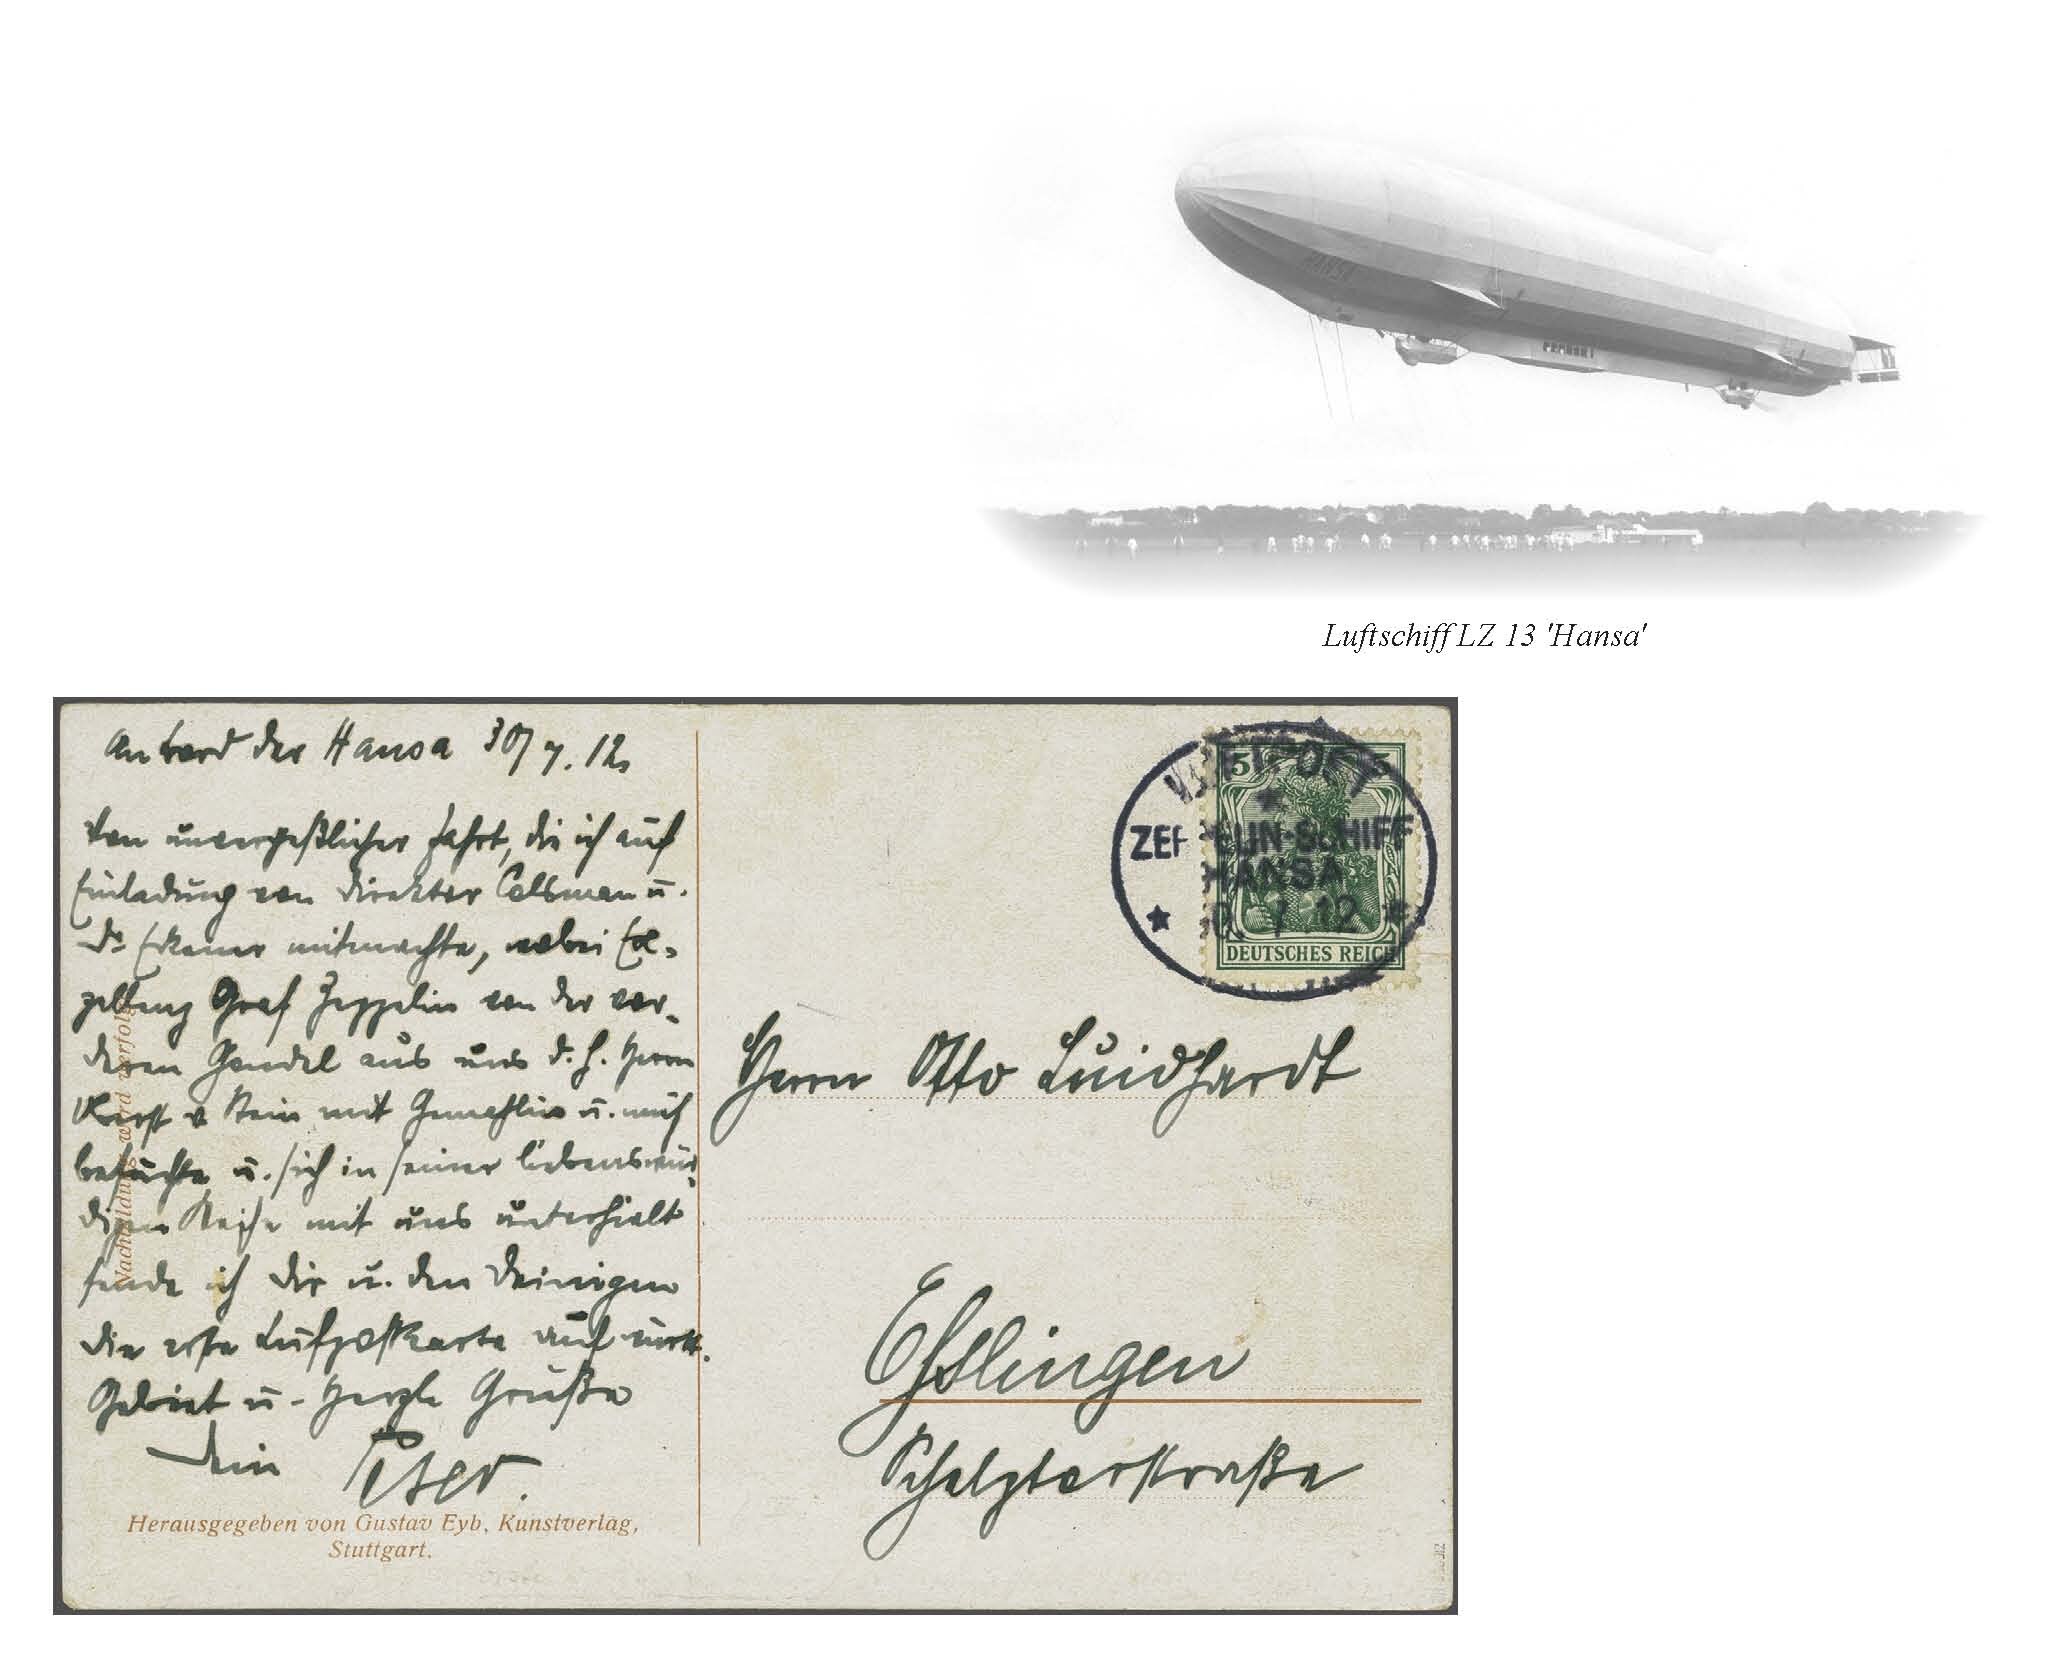 HANSA
Luftschiff LZ 13 'Hansa'
An bord der Hansa 30/7. 12.
Von unvergeßlicher Fahrt, die ich auf
Einladung von Direktor Colsman u.
Dr Eckener mitmachte, wobei Ex-
zellenz Graf Zeppelin von der vor-
deren Gondel aus uns d. h. Herrn
v Stein mit Gemahlin u. mich
besuchte u. sich in seiner liebenswür-
digen Weise mit uns unterhielt
sende ich dir u. den Deinigen
die erste Luftpostkarte auf württ.
Gebiet u. herzl Grüße
Dein
Herausgegeben von Gustav Eyb, Kunstverlag,
Stuttgart.
Nachbildung wird verfolgt
5 5
DEUTSCHES REICH
LUFTPOST
ZEPPELIN-SCHIFF
HANSA
30. 7. 12
Herrn Otto Luidhardt
Eßlingen
Schelztorstraße